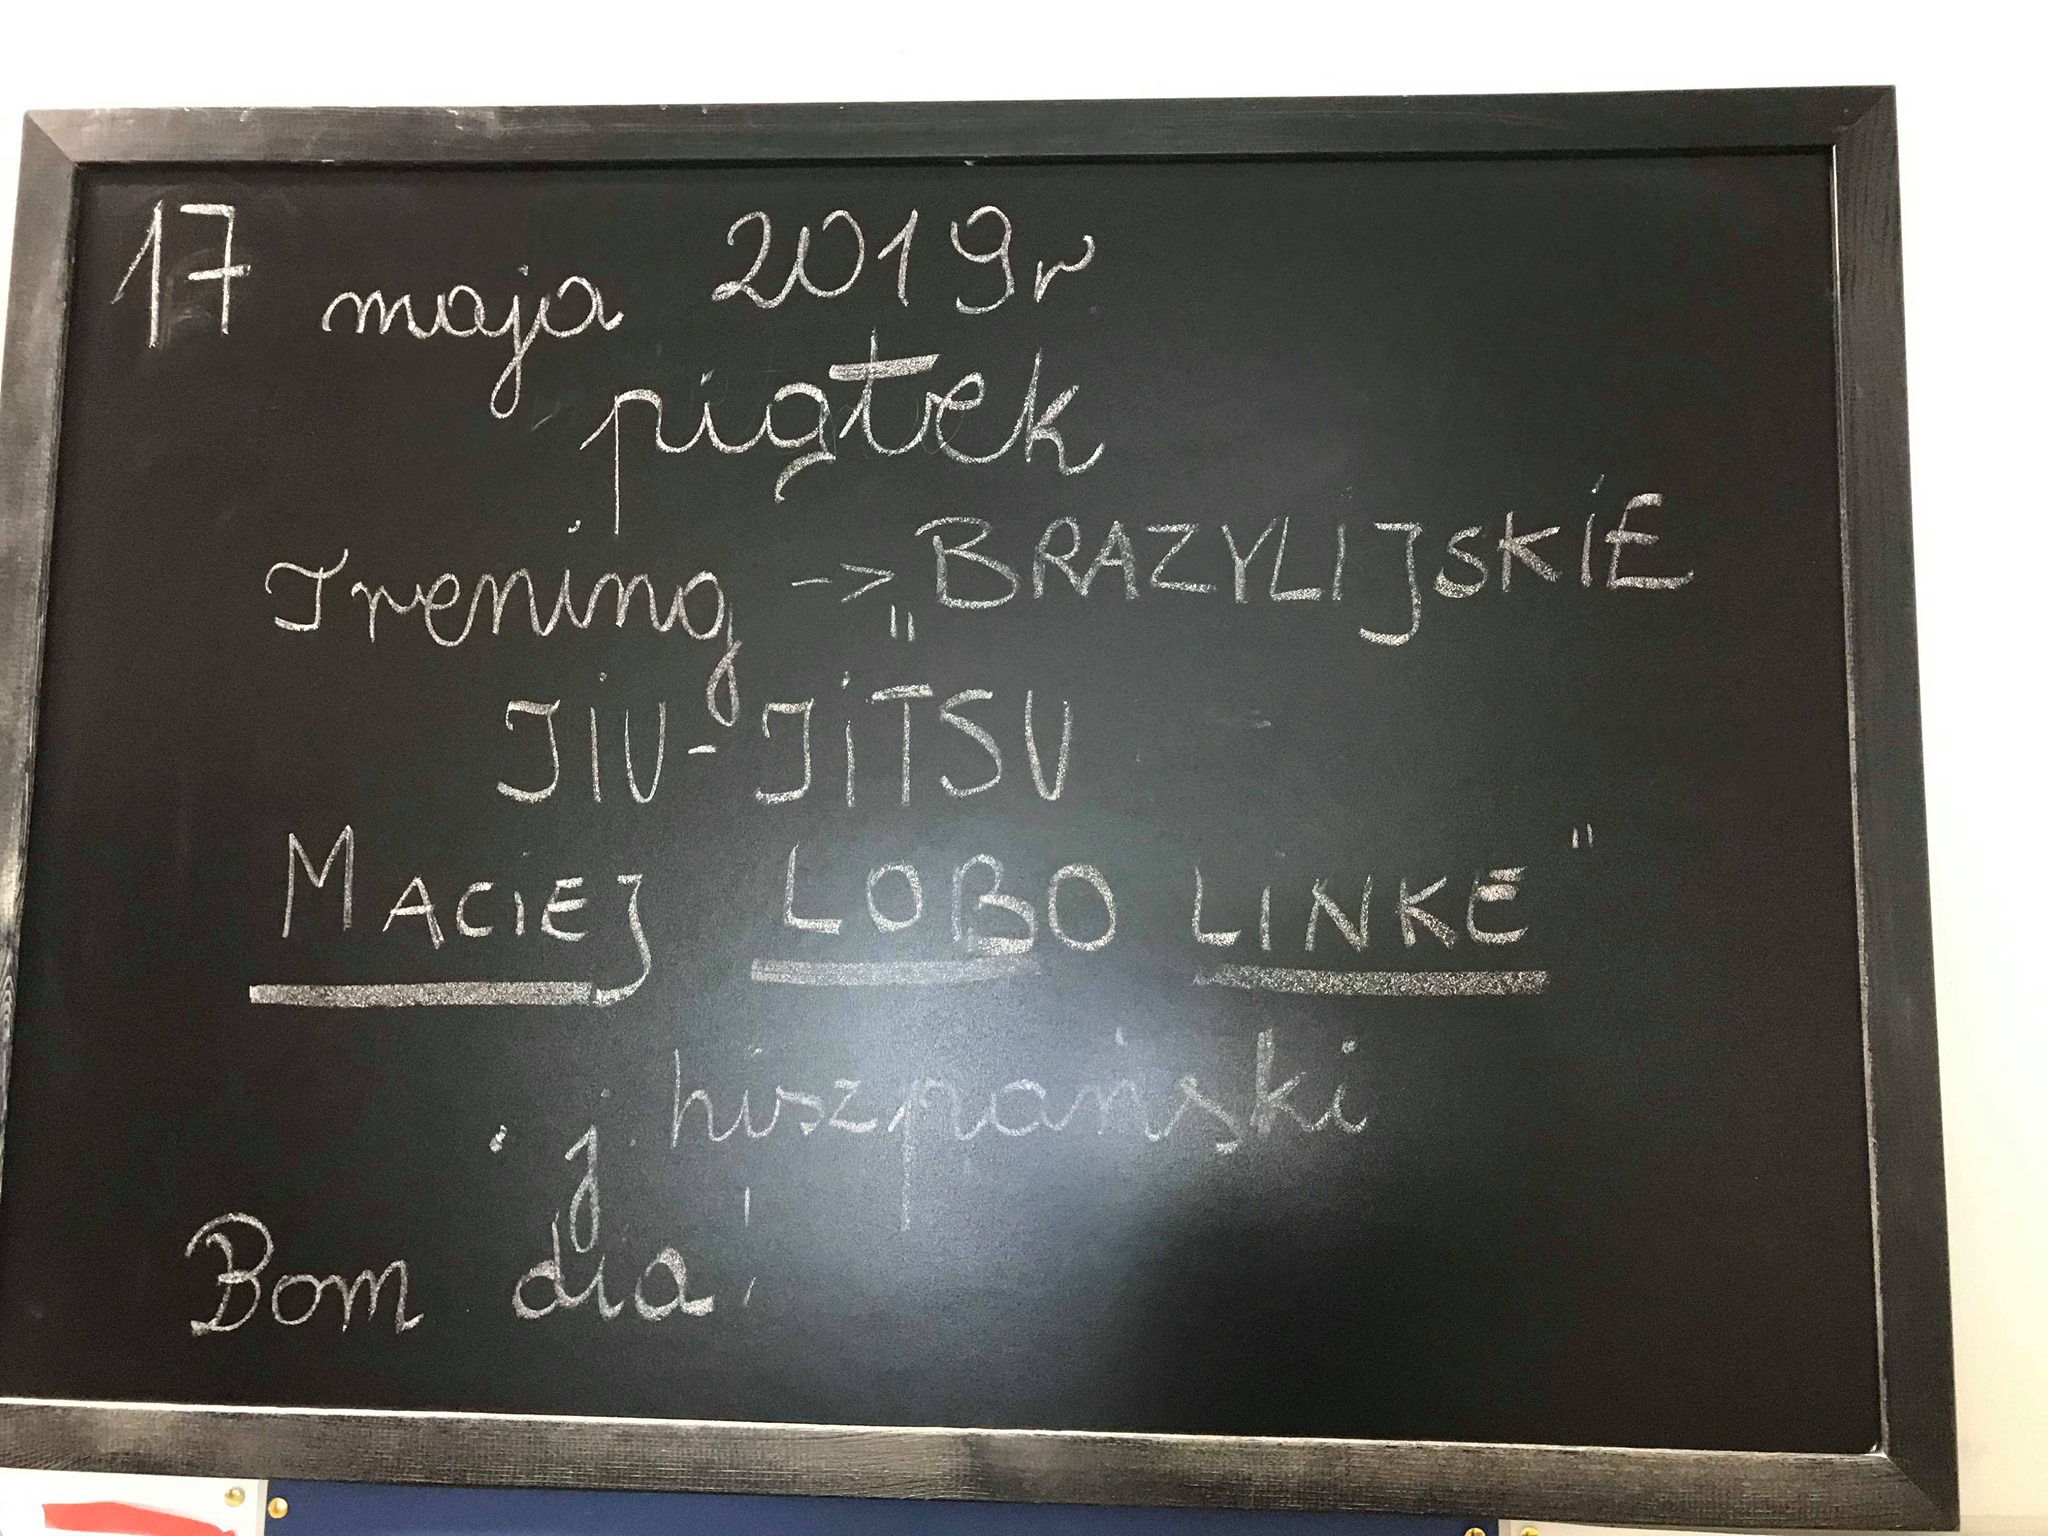 17 maja 2019r
piątek
Trening -> "BRAZYLIJSKIE
JIU-JITSU
MACIEJ LOBO LINKE"
• j. hiszpański
Bom dia!